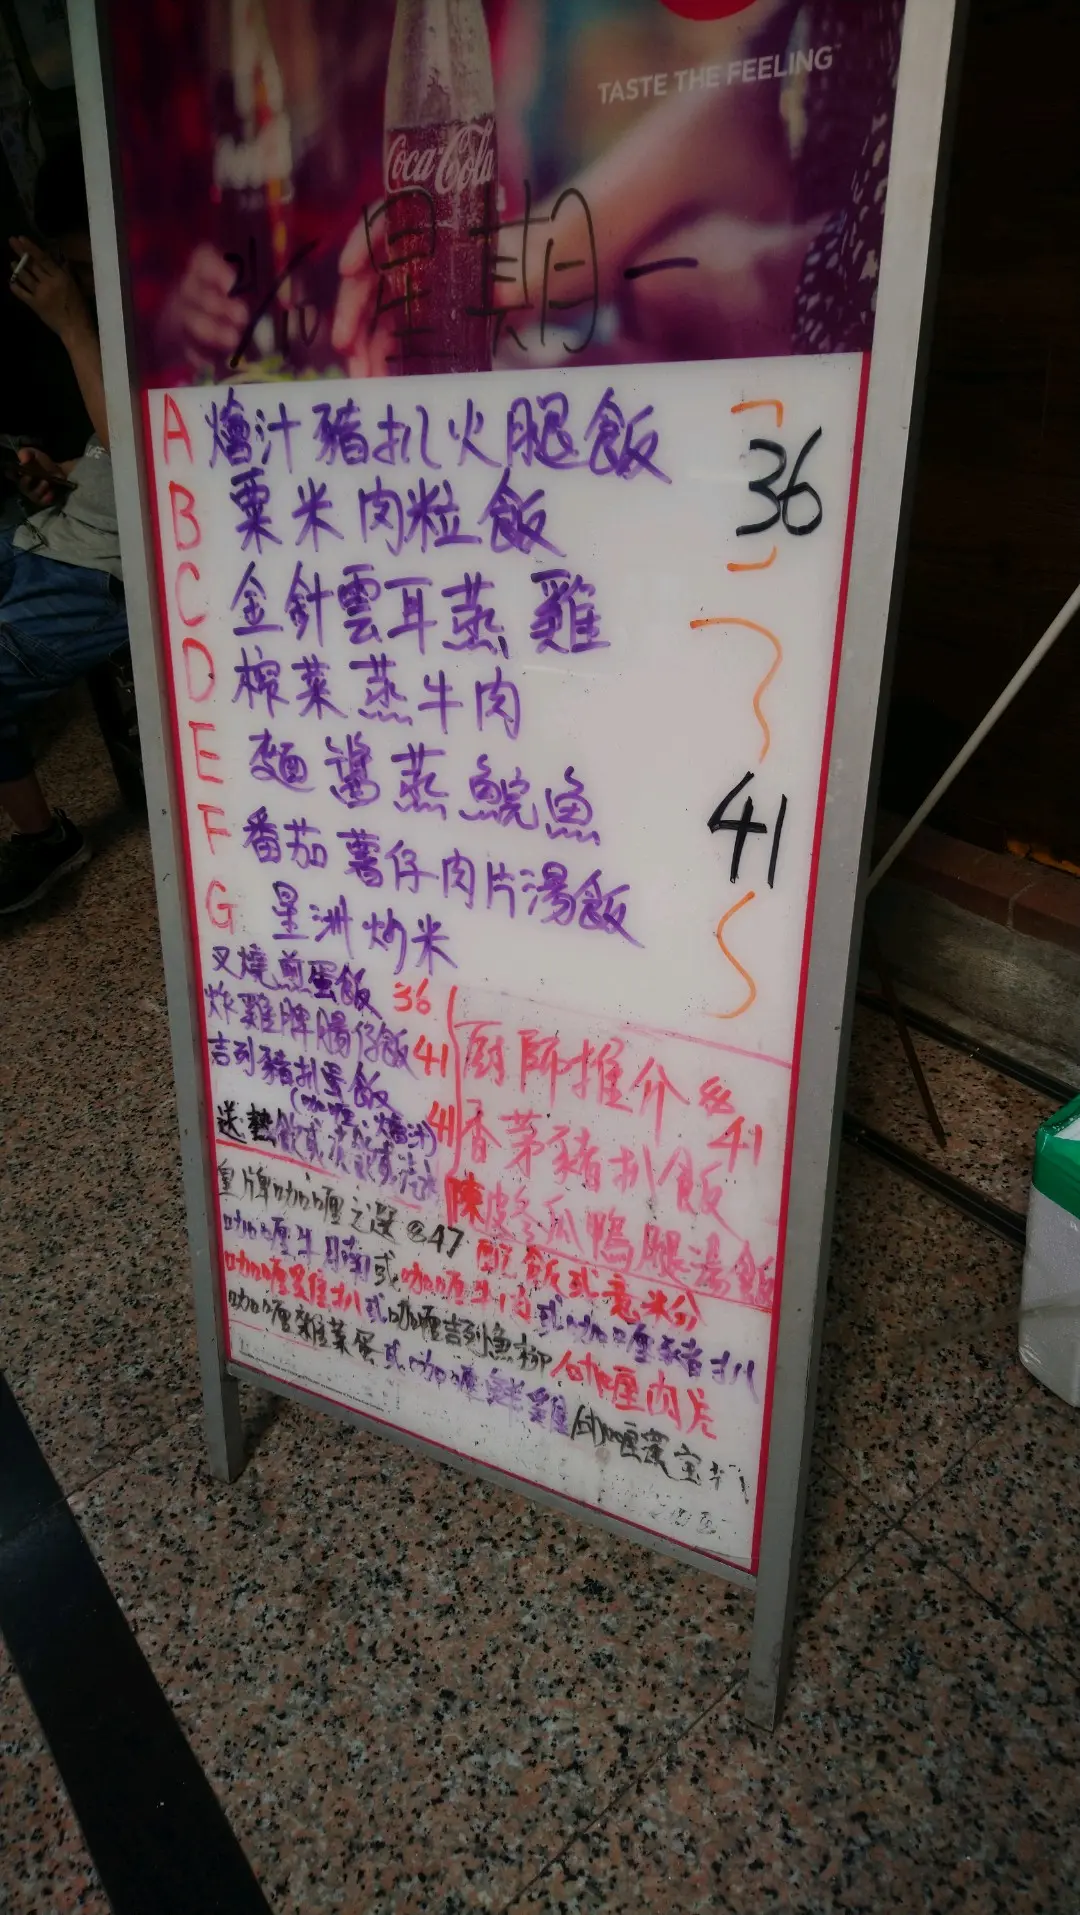 TASTE THE FEELING
Coca-Cola
21/10 星期一
A 燴汁豬扒火腿飯
B 粟米肉粒飯
36
C 金針雲耳蒸雞
D 榨菜蒸牛肉
E 麵醬蒸鯇魚
F 番茄薯仔肉片湯飯
G 星洲炒米
41
叉燒煎蛋飯 36
炸雞脾腸仔飯 41
吉列豬扒蛋飯
(咖喱、燴汁) 41
送熱飲或凍飲或汽水
廚師推介
香茅豬扒飯 41
陳皮冬瓜鴨腿湯飯
皇牌咖喱之選 @47 配飯或意米粉
咖喱牛腩或咖喱牛肉或咖喱豬扒
咖喱雞扒或咖喱吉列魚柳 咖喱肉片
咖喱雜菜蛋或咖喱鮮雞